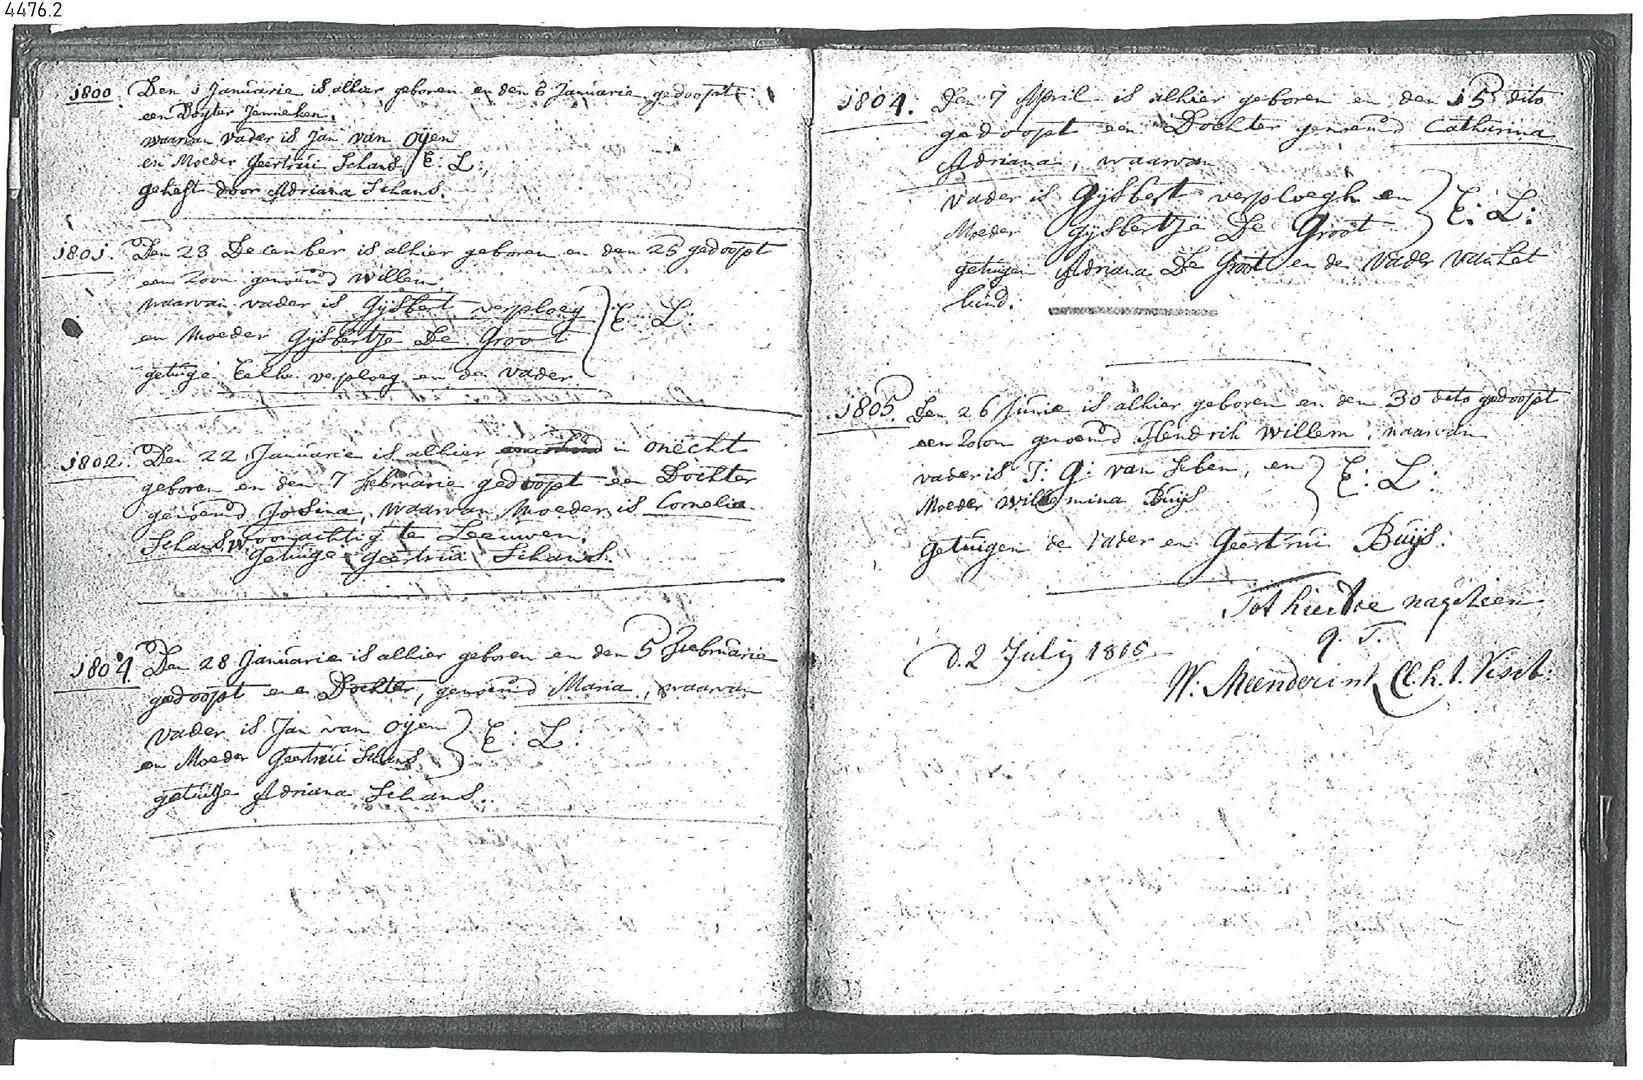 4476.2
1800 Den 1 Januarie is alhier geboren en den 6 Januarie gedoopt
een Dogter Jenneken,
waarvan vader is Jan van Oijen
en Moeder Geertrui Schans E: L:,
geheft door Adriana Schans.
1801. Den 23 December is alhier geboren en den 26 gedoopt
een Zoon genoemd Willem
waarvan vader is Gijsbert verploeg
en Moeder Gijsbertje De Groot E: L:
getuige Eelke verploeg en de vader
1802. Den 22 Januarie is alhier in onecht
geboren en den 7 Februarie gedoopt een Dochter
genoemd Josina, waarvan Moeder is Cornelia
Schans, woonachtig te Leeuwen.
Getuige Geertrui Schans.
1804 Den 28 Januarie is alhier geboren en den 5 Februarie
gedoopt een Dochter, genoemd Maria, waarvan
vader is Jan van Oijen
en Moeder Geertrui Schans E: L:
getuige Adriana Schans.
1804. Den 7 April is alhier geboren en den 15 dito
gedoopt een Dochter genoemd Catharina
Adriana, waarvan
vader is Gijsbert verploegh en
Moeder Gijsbertje De Groot E: L:
getuigen Adriana De Groot en de Vader van het
kind.
1805 Den 26 Junie is alhier geboren en den 30 dito gedoopt
een Zoon genoemd Hendrik Willem, waarvan
vader is J: G: van Seben, en
Moeder Willemina Buijs E: L:
getuigen de Vader en Geertrui Buijs.
Tot hiertoe nagezien
q. T.
D. 2 Julij 1805
W. Meenderink